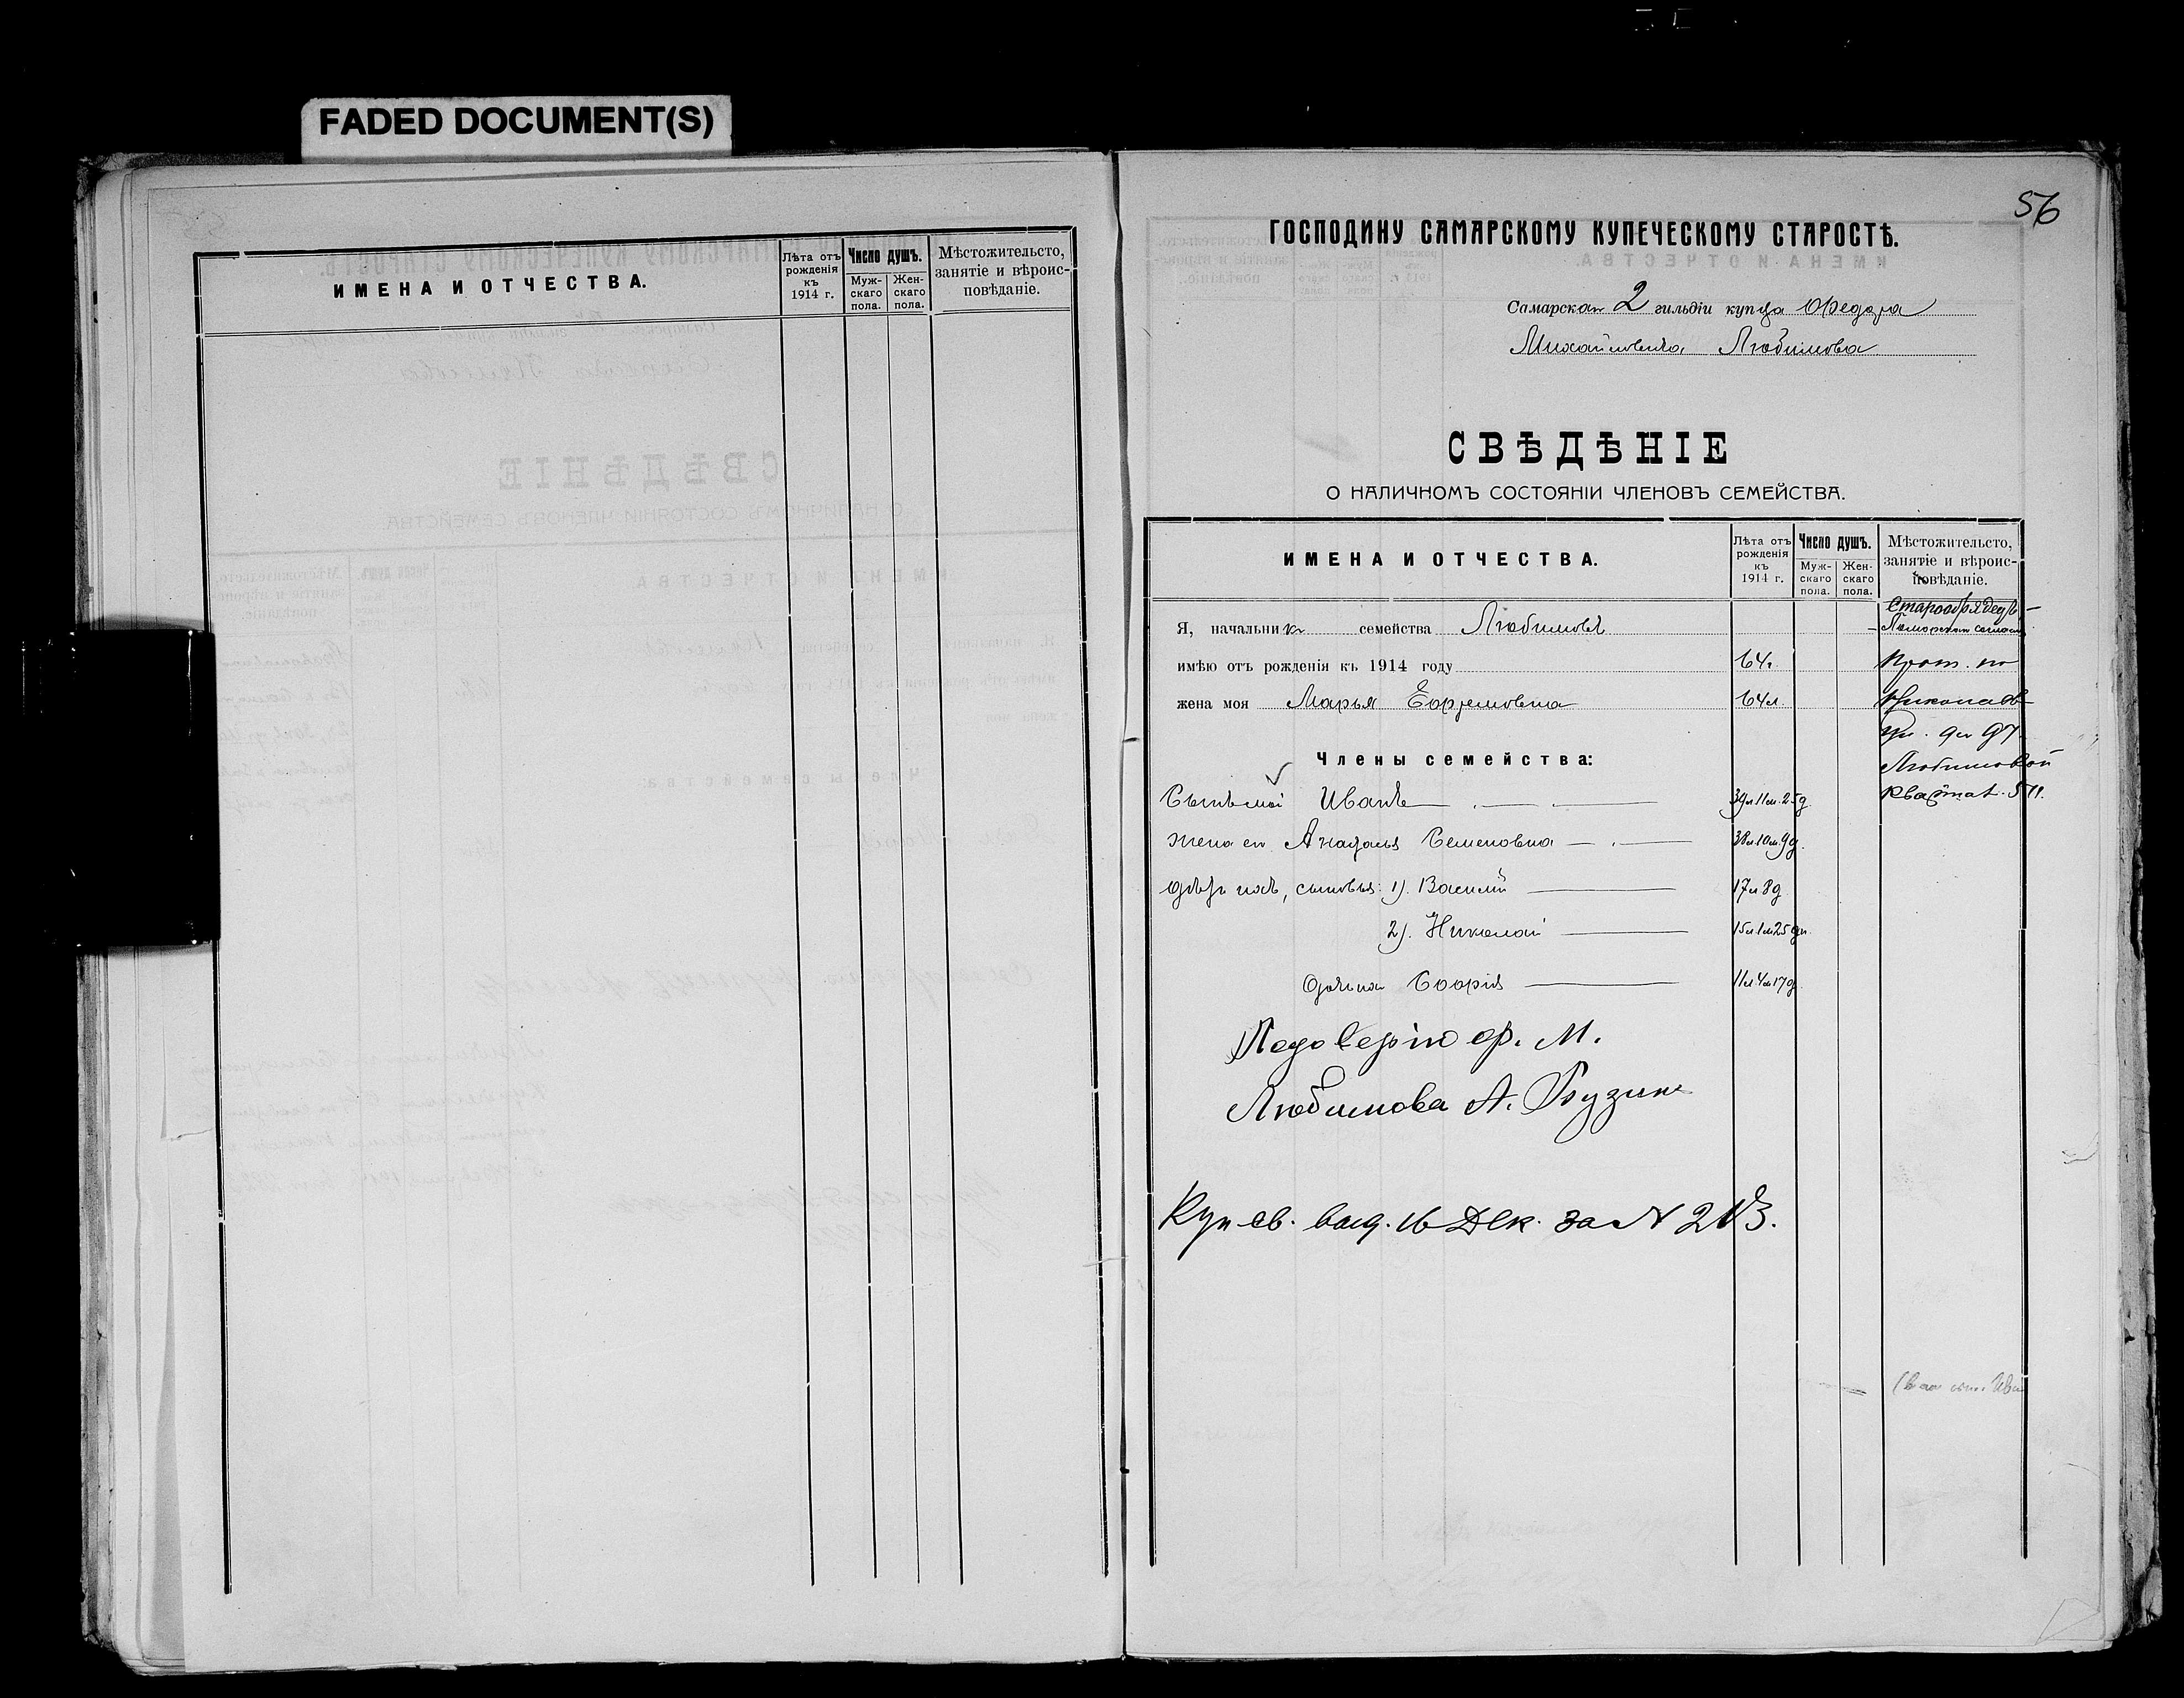 FADED DOCUMENT(S)
ИМЕНА И ОТЧЕСТВА.
Лѣта отъ рожденія къ 1914 г.
Число душъ.
Муж-скаго пола.
Жен-скаго пола.
Мѣстожительсто, занятіе и вѣроис-повѣданіе.
56
ГОСПОДИНУ САМАРСКОМУ КУПЕЧЕСКОМУ СТАРОСТѢ.
Самарскаго 2 гильдіи купца Федора
Михайловича Любимова
СВѢДѢНІЕ
О НАЛИЧНОМЪ СОСТОЯНІИ ЧЛЕНОВЪ СЕМЕЙСТВА.
ИМЕНА И ОТЧЕСТВА.
Лѣта отъ рожденія къ 1914 г.
Число душъ.
Муж-скаго пола.
Жен-скаго пола.
Мѣстожительсто, занятіе и вѣроис-повѣданіе.
Старообрядецъ
Я, начальникъ семейства Любимовъ
Поморскаго
имѣю отъ рожденія къ 1914 году 64г. Прож. по
жена моя Марья Ефремовна 64л. Николаев
ул. д. 97
Члены семейства:
Любимовой
Сынъ мой Иванъ 39л 11м. 25д. Кварталъ
жена его Анаталья Семеновна 38л 10м 9д.
дѣти ихъ, сыновья: 1). Василій 17л 8д
2). Николай 15л 1м 25дн.
дочь Софія 11л 4м 17д.
По доверію Ф. М.
Любимова А. Бузин
Куп св. выд. 16 Дек. за № 213.